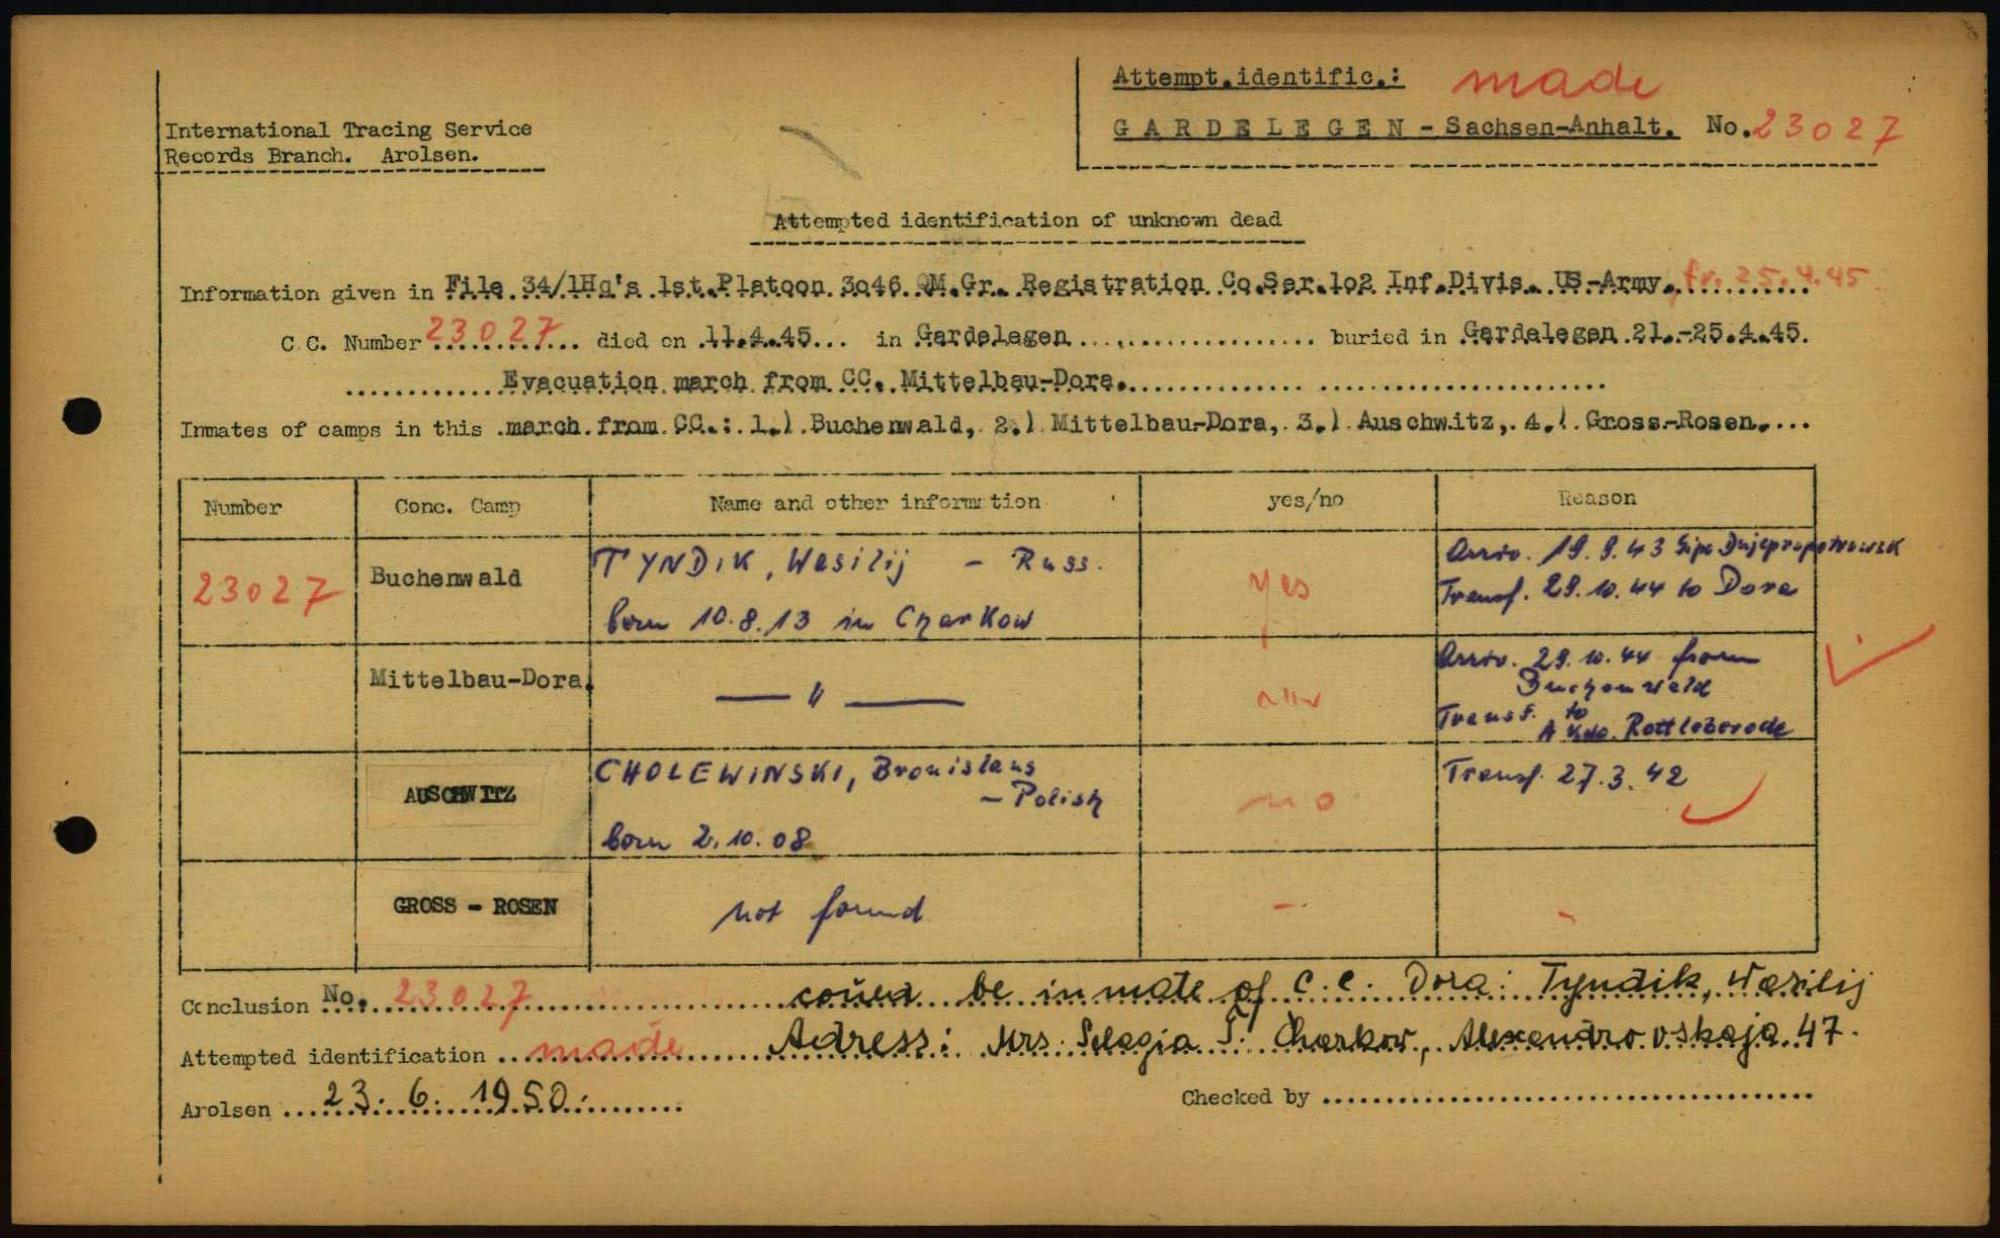 Attempt.identific.: made
International Tracing Service
Records Branch. Arolsen.
GARDELEGEN - Sachsen-Anhalt. No. 23027
Attempted identification of unknown dead
Information given in File 34/1Hq's 1st.Platoon 3o46 QM.Gr. Registration Co.Ser.1o2 Inf.Divis. US-Army. fr. 25.4.45
C.C. Number 23027 died on 11.4.45 in Gardelegen buried in Gardelegen 21.-25.4.45.
Evacuation march from CC. Mittelbau-Dora.
Inmates of camps in this march from CC.: 1.) Buchenwald, 2.) Mittelbau-Dora, 3.) Auschwitz, 4.) Gross-Rosen.
Number Conc. Camp Name and other information yes/no Reason
23027 Buchenwald TYNDIK, Wasilij - Russ. yes Arriv. 19.9.43 Sipo Dnjepropetrowsk
born 10.8.13 in Charkow Transf. 29.10.44 to Dora
Mittelbau-Dora. — " — Arriv. 29.10.44 from
Buchenwald
Transf. to
A Kdo. Rottleberode
AUSCHWITZ CHOLEWINSKI, Bronislaus no Transf. 27.3.42
- Polish
born 2.10.08
GROSS - ROSEN not found - -
Conclusion No. 23027 could be inmate of C.C. Dora: Tyndik, Wasilij
Attempted identification made Adress: Mrs. Selagia T. Charkow, Alexandrovskaja 47.
Arolsen 23. 6. 1950. Checked by